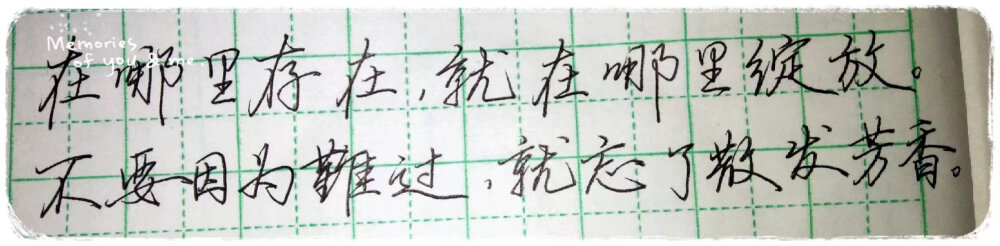 Memories
of you & me
在哪里存在，就在哪里绽放。
不要因为難过，就忘了散发芳香。